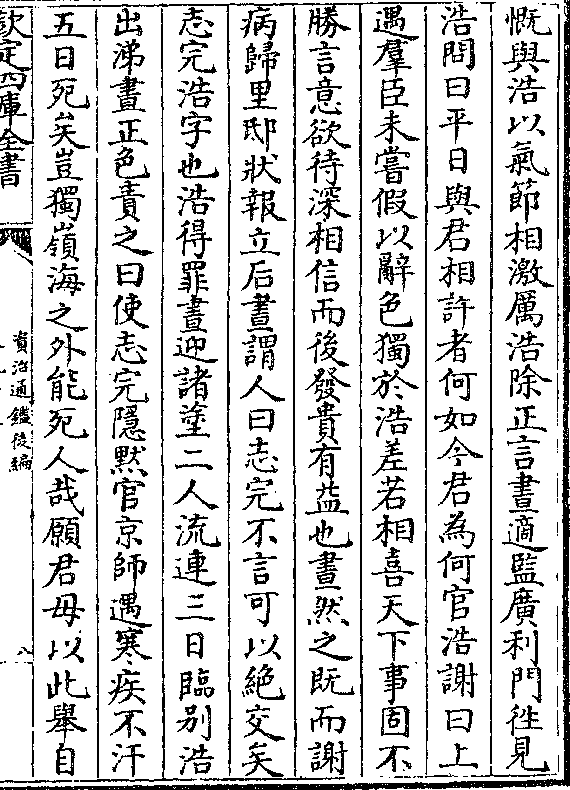 慨與浩以氣節相激厲浩除正言晝適監廣利門徃見
浩問曰平日與君相許者何如今君為何官浩謝曰上
遇羣臣未嘗假以辭色獨於浩差若相喜天下事固不
勝言意欲待深相信而後發貴有益也晝然之既而謝
病歸里邸狀報立后晝謂人曰志完不言可以絶交矣
志完浩字也浩得罪晝迎諸塗二人流連三日臨别浩
出涕晝正色責之曰使志完隱黙官京師遇寒疾不汗
五日死矣豈獨嶺海之外能死人哉願君毋以此舉自
欽定四庫全書
資治通鑑後編
八